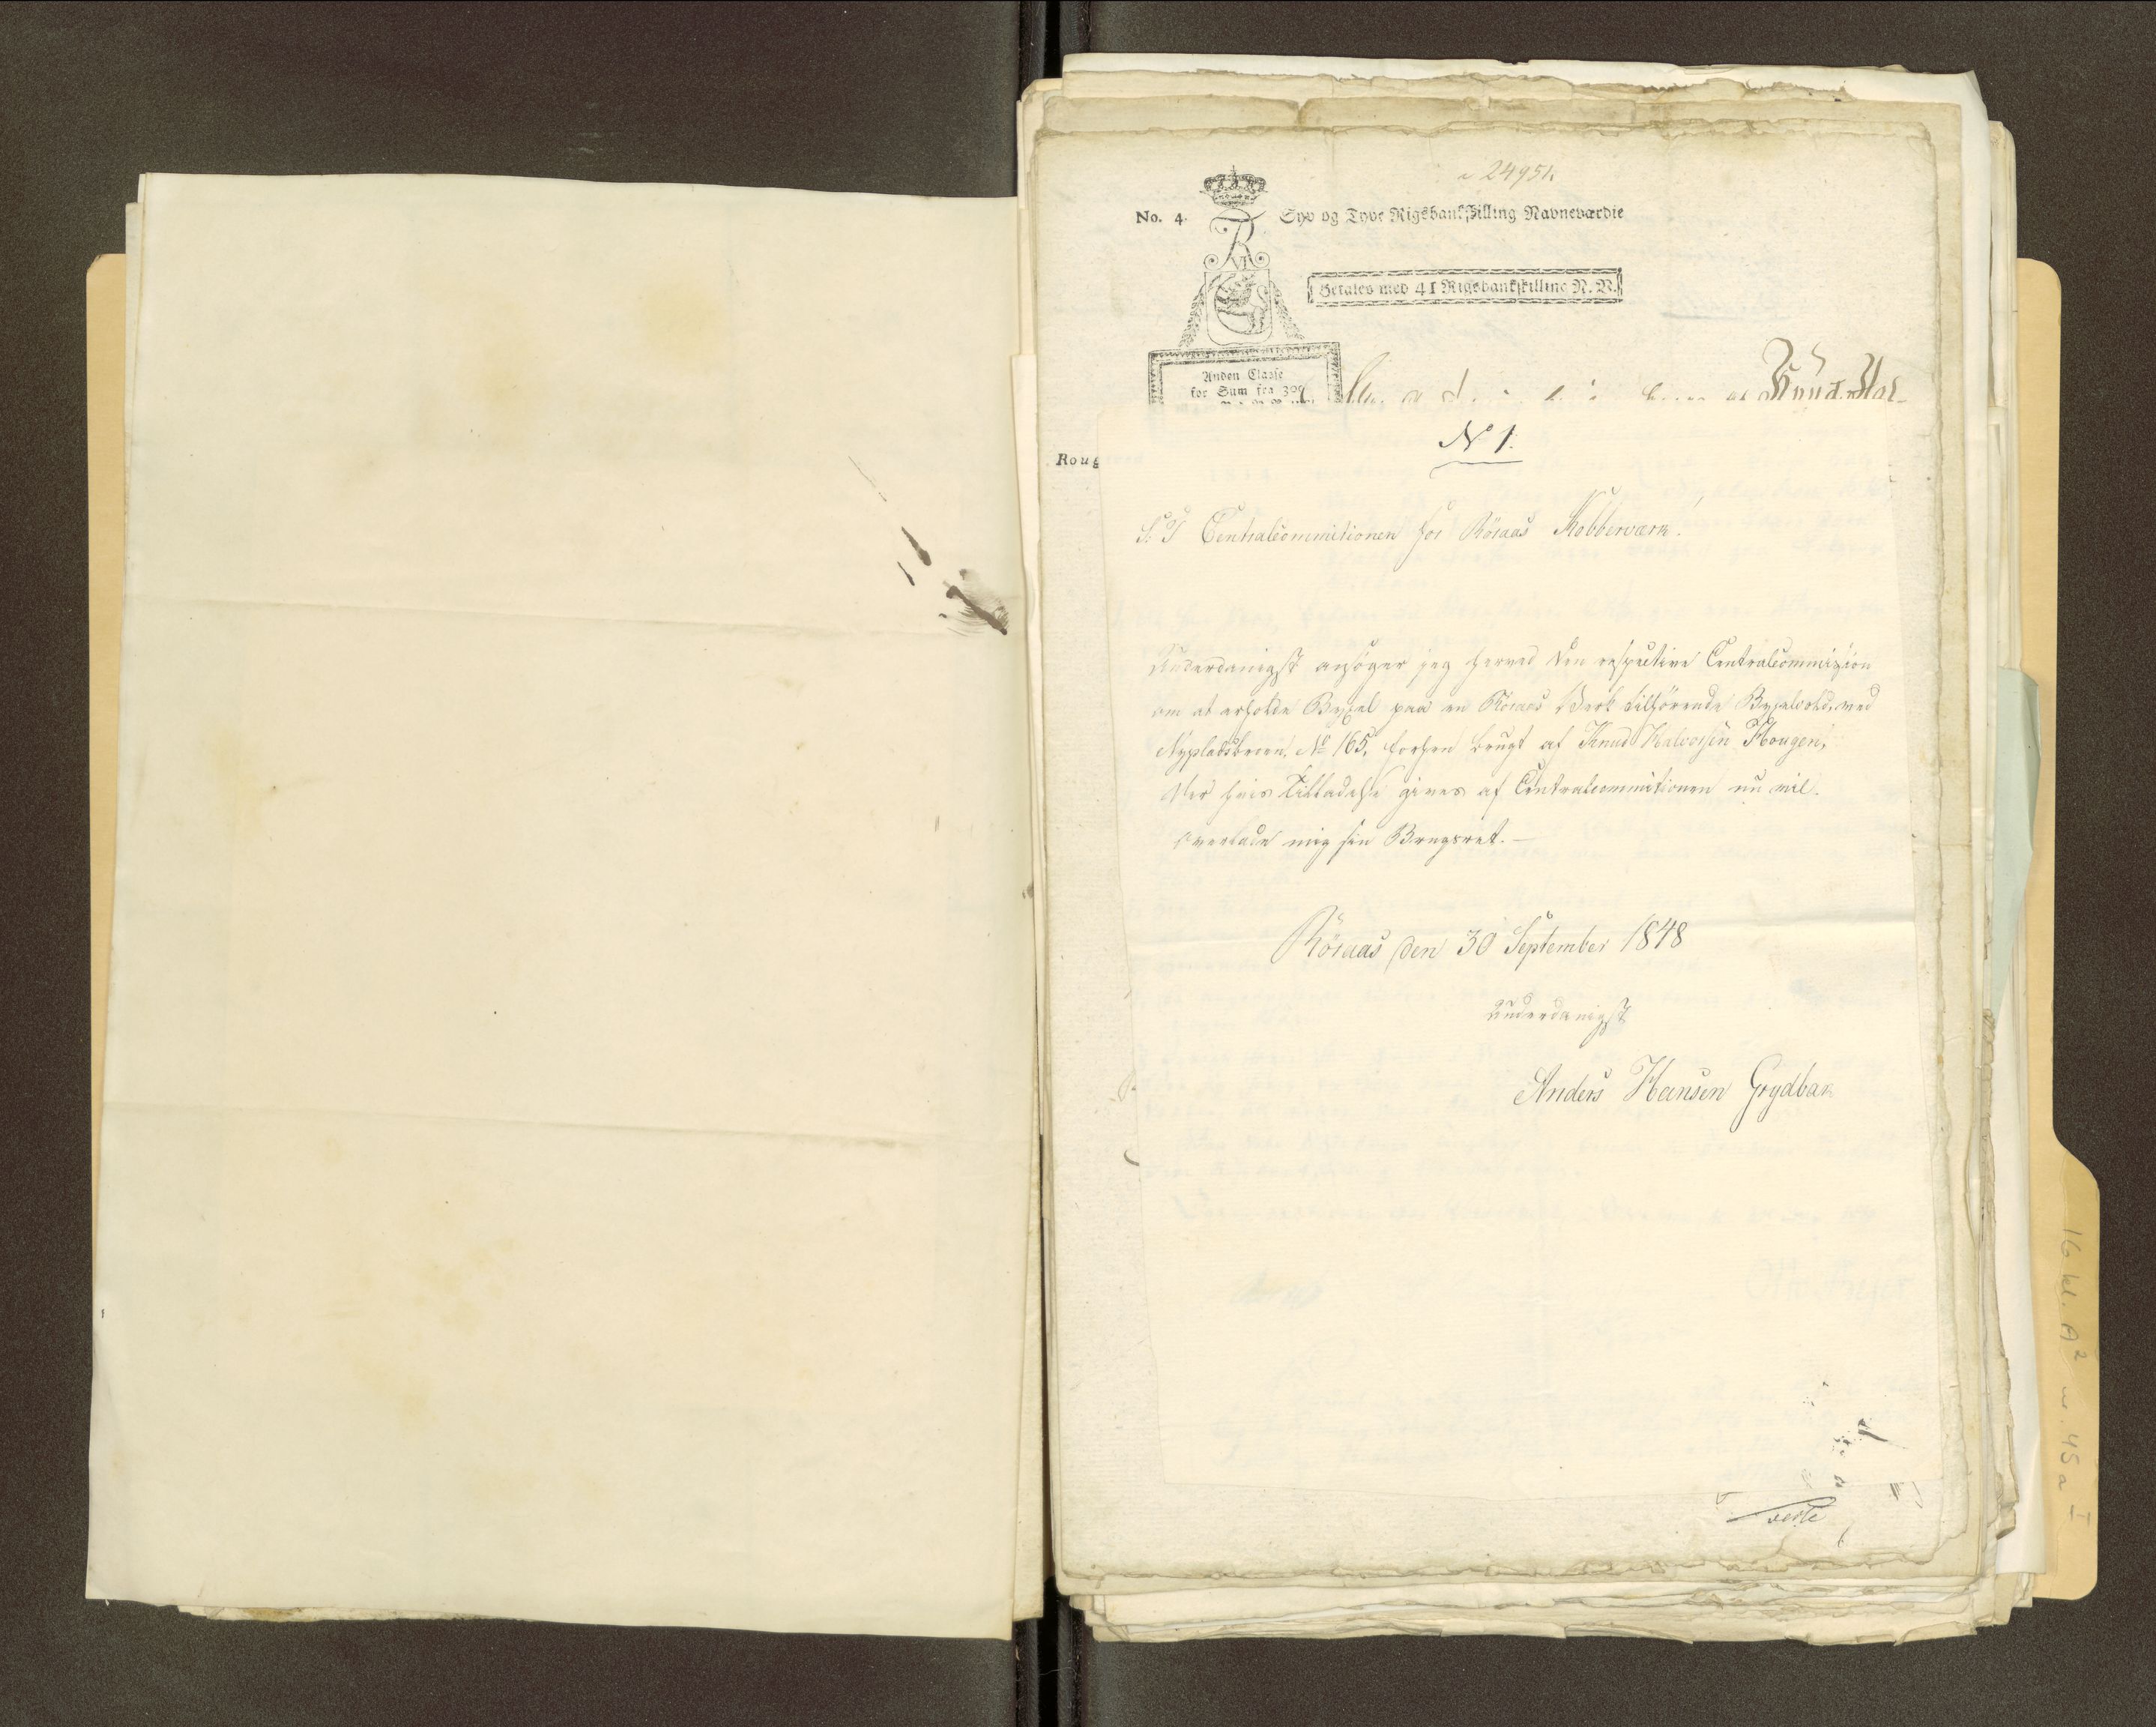 24951.
No. 4.
Syv og Tyve Rigsbankskilling Navneværdie
Betales med 41 Rigsbankskilling N. V.
Anden Classe
for Sum fra 300
Knud Hal-
Roug
No 1.
S. T. Centralcommitionen for Röraas Kobberværk!
Underdanigst ansøger jeg herved den respective Centralcommission
om at erholde Bygsel paa en Röraas Verk tilhörende Bygselvold, ved
Nypladsbroen, No 165, forhen brugt af Knud Halvorsen Hougen,
der hvis Tilladelse gives af Centralcommitionen nu vil
overlade mig sin Brugsret. —
Röraas den 30 September 1848
Underdanigst
Anders Hansen Grydbak
16 kl. A2 nr. 45 a I